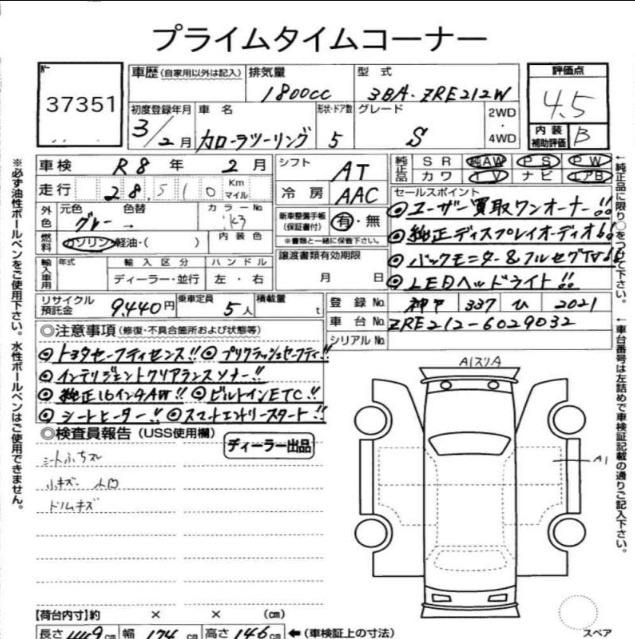 プライムタイムコーナー
37351
車歴(自家用以外は記入) 排気量 1800cc 型式 3BA-ZRE212W
評価点 4.5
初度登録年月 3/2月 車名 カローラツーリング 形状・ドア数 5 グレード S 2WD・4WD
内装補助評価 B
車検 R8年 2月 シフト AT
純正品 SR 純AW PS PW
カワ TV ナビ エアB
走行 28,510 Km マイル 冷房 AAC
セールスポイント
外色 元色 グレー 色替 → カラーNo. 1K3
新車整備手帳(保証書付) 有・無
※書類と一緒に保管下さい。
◎ユーザー買取ワンオーナー!!
◎純正ディスプレイオーディオ!!
◎バックモニター&フルセグTV!!
◎LEDヘッドライト!!
燃料 ガソリン・軽油・( ) 内装色
輸入車用 年式 輸入区分 ディーラー・並行 ハンドル 左・右
譲渡書類有効期限 月 日
リサイクル預託金 9,440円 乗車定員 5人 積載量 t
登録No. 神戸 337 ひ 2021
車台No. ZRE212-6029032
シリアルNo.
◎注意事項(修復・不具合箇所および状態等)
◎トヨタセーフティセンス!! ◎プリクラッシュセーフティ!!
◎インテリジェントクリアランスソナー!!
◎純正16インチAW!! ◎ビルトインETC!!
◎シートヒーター!! ◎スマートエントリースタート!!
◎検査員報告(USS使用欄) ディーラー出品
シートふちズレ
小キズ 小凹
ドリムキズ
A1スリA
A1
スペア
【荷台内寸】約 × × (cm)
長さ 449 cm 幅 174 cm 高さ 146 cm ←(車検証上の寸法)
※必ず油性ボールペンをご使用下さい。水性ボールペンはご使用できません。
←純正品に限り○をつけて下さい。
←車台番号は左詰めで車検証記載の通りご記入下さい。